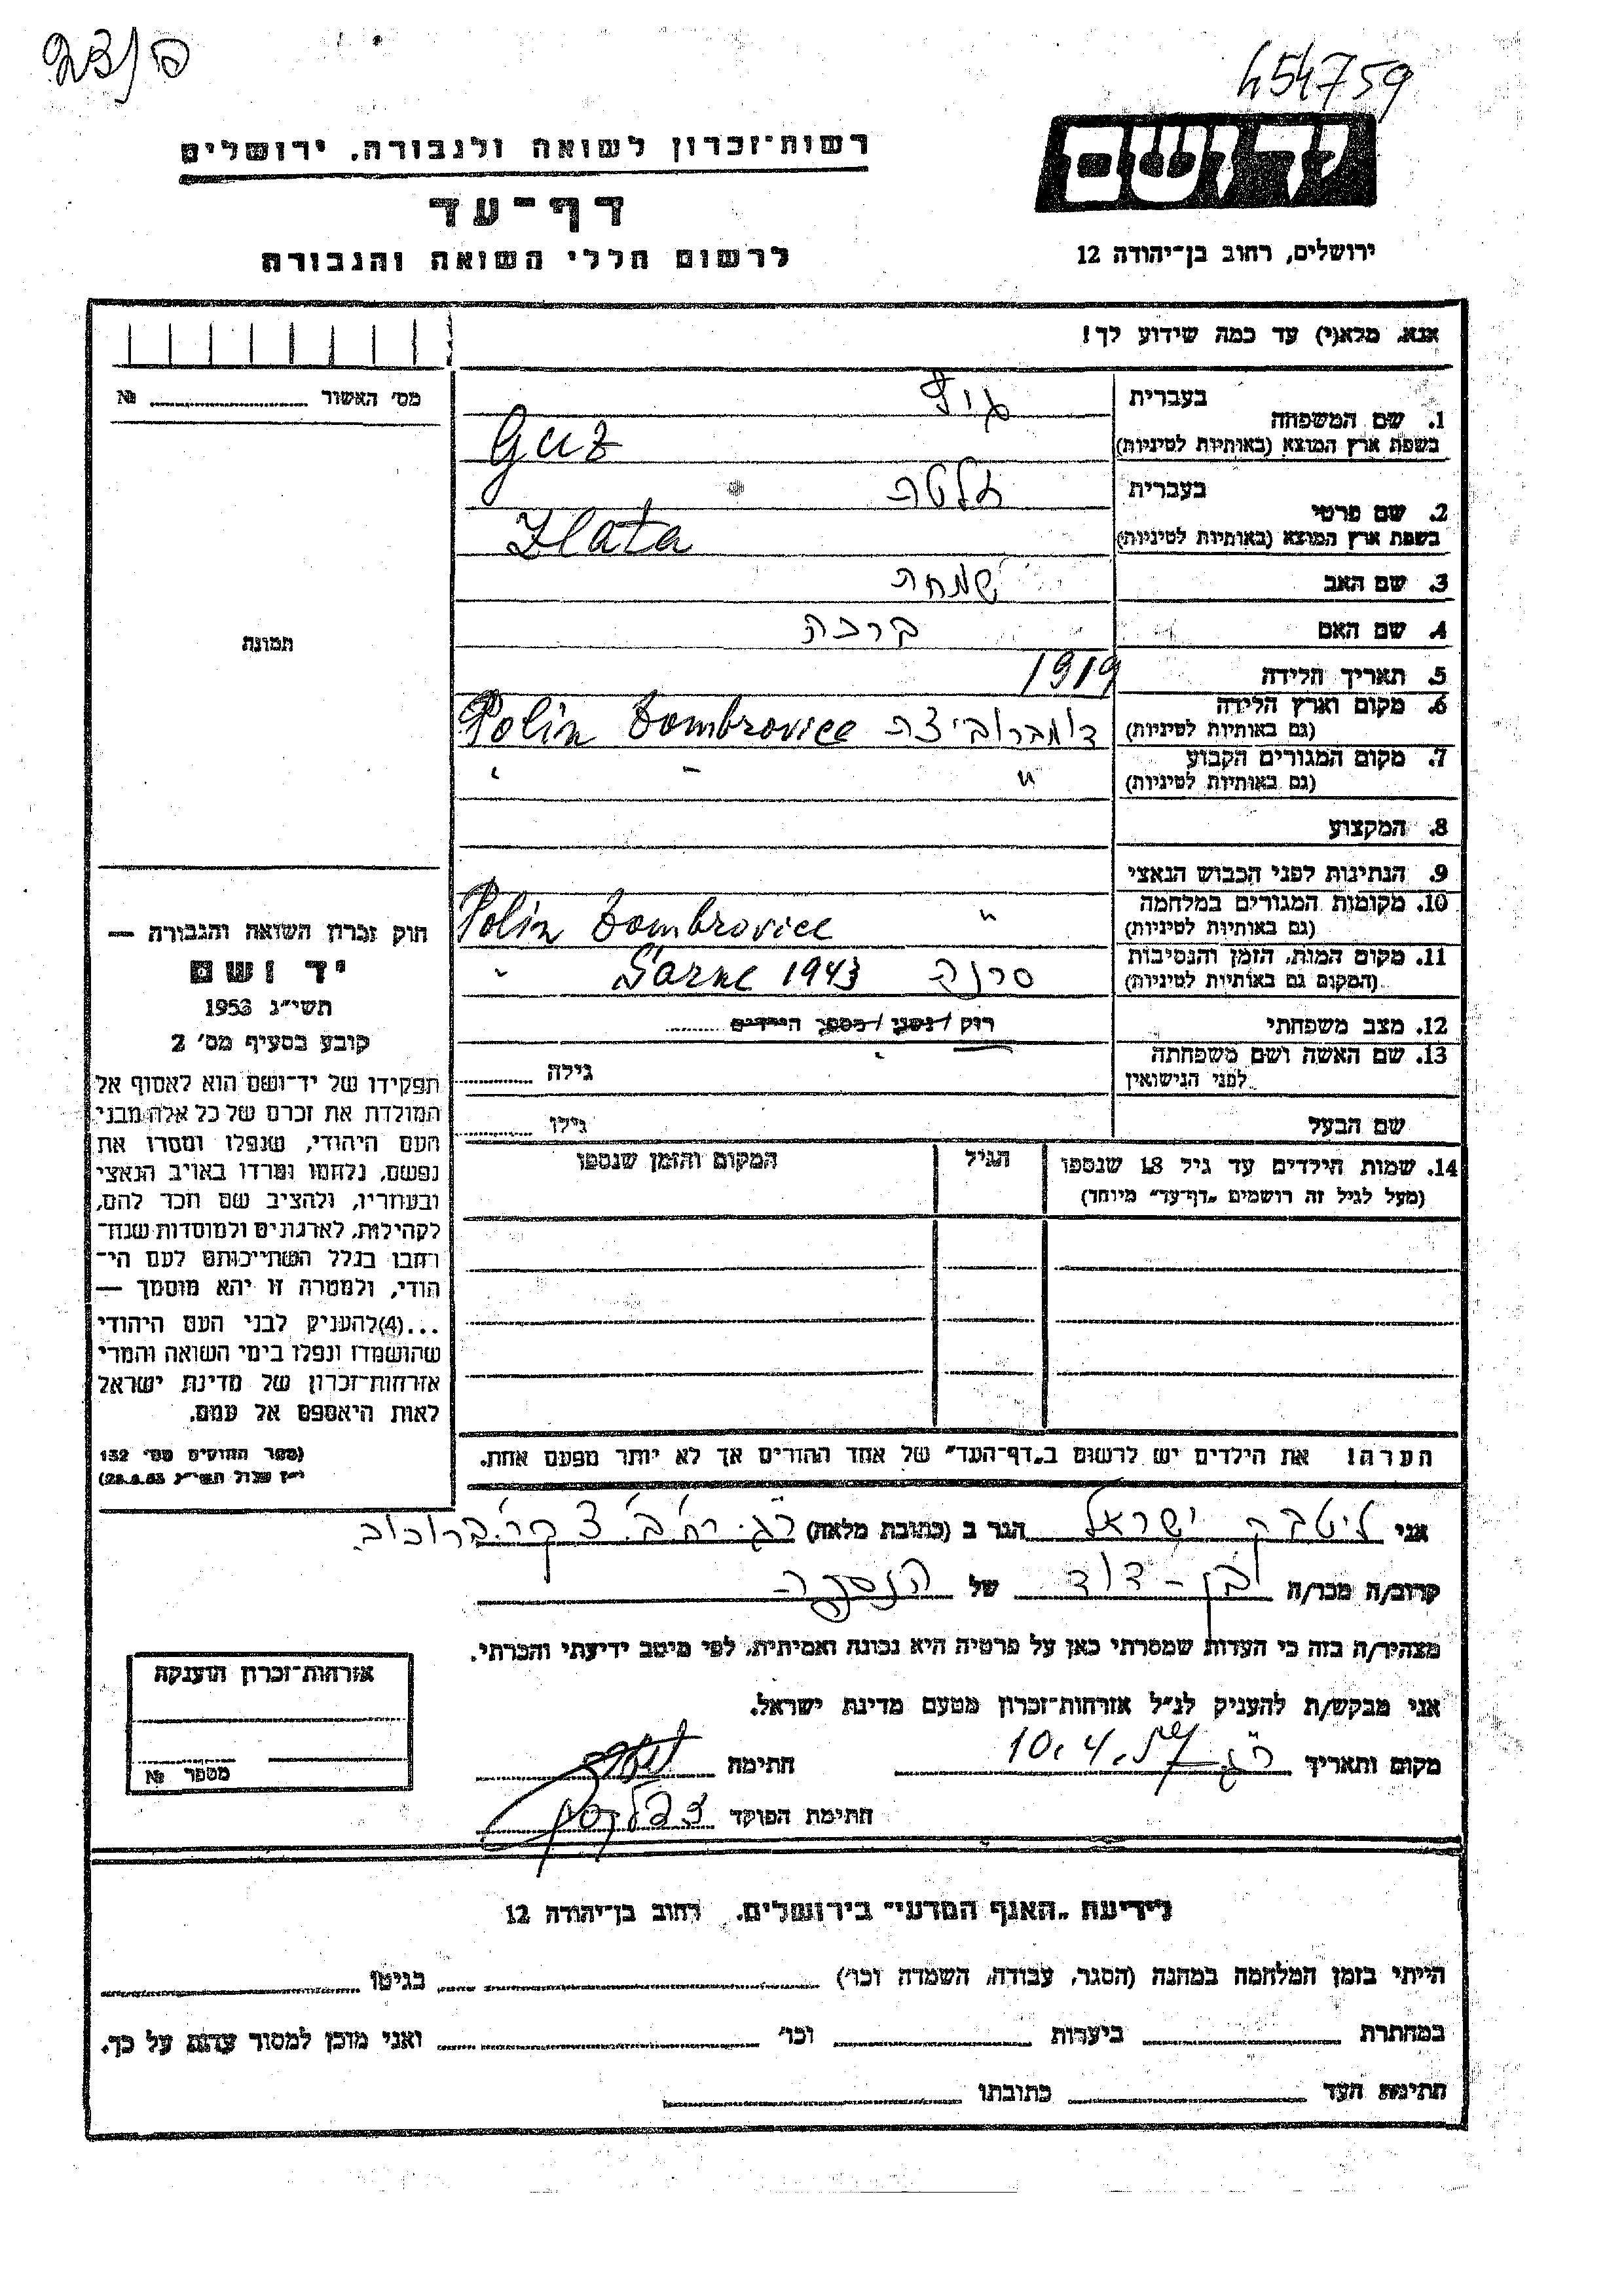 454759
יד ושם
ירושלים, רחוב בן־יהודה 12
רשות־זכרון לשואה ולגבורה. ירושלים
דף־עד
לרשום חללי השואה והגבורה
אנא, מלא(י) עד כמה שידוע לך!
מס' האשור № 
1. שם המשפחה
בעברית גוז
בשפת ארץ המוצא (באותיות לטיניות) Guz
2. שם פרטי
בעברית זלטה
בשפת ארץ המוצא (באותיות לטיניות) Zlata
3. שם האב שמחה
4. שם האם ברכה
5. תאריך הלידה 1919
6. מקום וארץ הלידה דומברוביצה Dombrovice Polin
(גם באותיות לטיניות)
7. מקום המגורים הקבוע " - "
(גם באותיות לטיניות)
8. המקצוע
9. הנתינות לפני הכבוש הנאצי
10. מקומות המגורים במלחמה " Dombrovice Polin
(גם באותיות לטיניות)
11. מקום המות, הזמן והנסיבות סרנה Sarne 1943 "
(המקום גם באותיות לטיניות)
12. מצב משפחתי רוק / נשוי / מספר הילדים
13. שם האשה ושם משפחתה גילה
לפני הנישואין
שם הבעל גילו
14. שמות הילדים עד גיל 18 שנספו הגיל המקום והזמן שנספו
(מעל לגיל זה רושמים „דף־עד" מיוחד)
הערה! את הילדים יש לרשום ב„דף־העד" של אחד ההורים אך לא יותר מפעם אחת.
תמונה
חוק זכרון השואה והגבורה —
יד ושם
תשי"ג 1953
קובע בסעיף מס' 2
תפקידו של יד־ושם הוא לאסוף אל
המולדת את זכרם של כל אלה מבני
העם היהודי, שנפלו ומסרו את
נפשם, נלחמו ומרדו באויב הנאצי
ובעוזריו, ולהציב שם וזכר להם,
לקהילות, לארגונים ולמוסדות שנח־
רחבו בגלל השתייכותם לעם הי־
הודי, ולמטרה זו יהא מוסמך —
...(4)להעניק לבני העם היהודי
שהושמדו ונפלו בימי השואה והמרי
אזרחות־זכרון של מדינת ישראל
לאות היאספם אל עמם.
(ספר החוקים מס' 132
י"ז אלול תשי"ג 28.8.53)
אני ליטבק ישראל הגר ב (כתובת מלאה) ר"ג. רח' ב. צ קר' ברוכוב.
קרוב/ה מכר/ה בן-דוד של הנספה
מצהיר/ה בזה כי העדות שמסרתי כאן על פרטיה היא נכונה ואמיתית, לפי מיטב ידיעתי והכרתי.
אני מבקש/ת להעניק לנ"ל אזרחות־זכרון מטעם מדינת ישראל.
מקום ותאריך ר"ג 10.4. חתימה
חתימת הפוקד
אזרחות־זכרון הוענקה
מספר №
לידיעת „האגף המדעי" בירושלים. רחוב בן־יהודה 12
הייתי בזמן המלחמה במחנה (הסגר, עבודה, השמדה וכו') בגיטו
במחתרת ביערות וכו' ואני מוכן למסור עדות על כך.
חתימת העד כתובתו